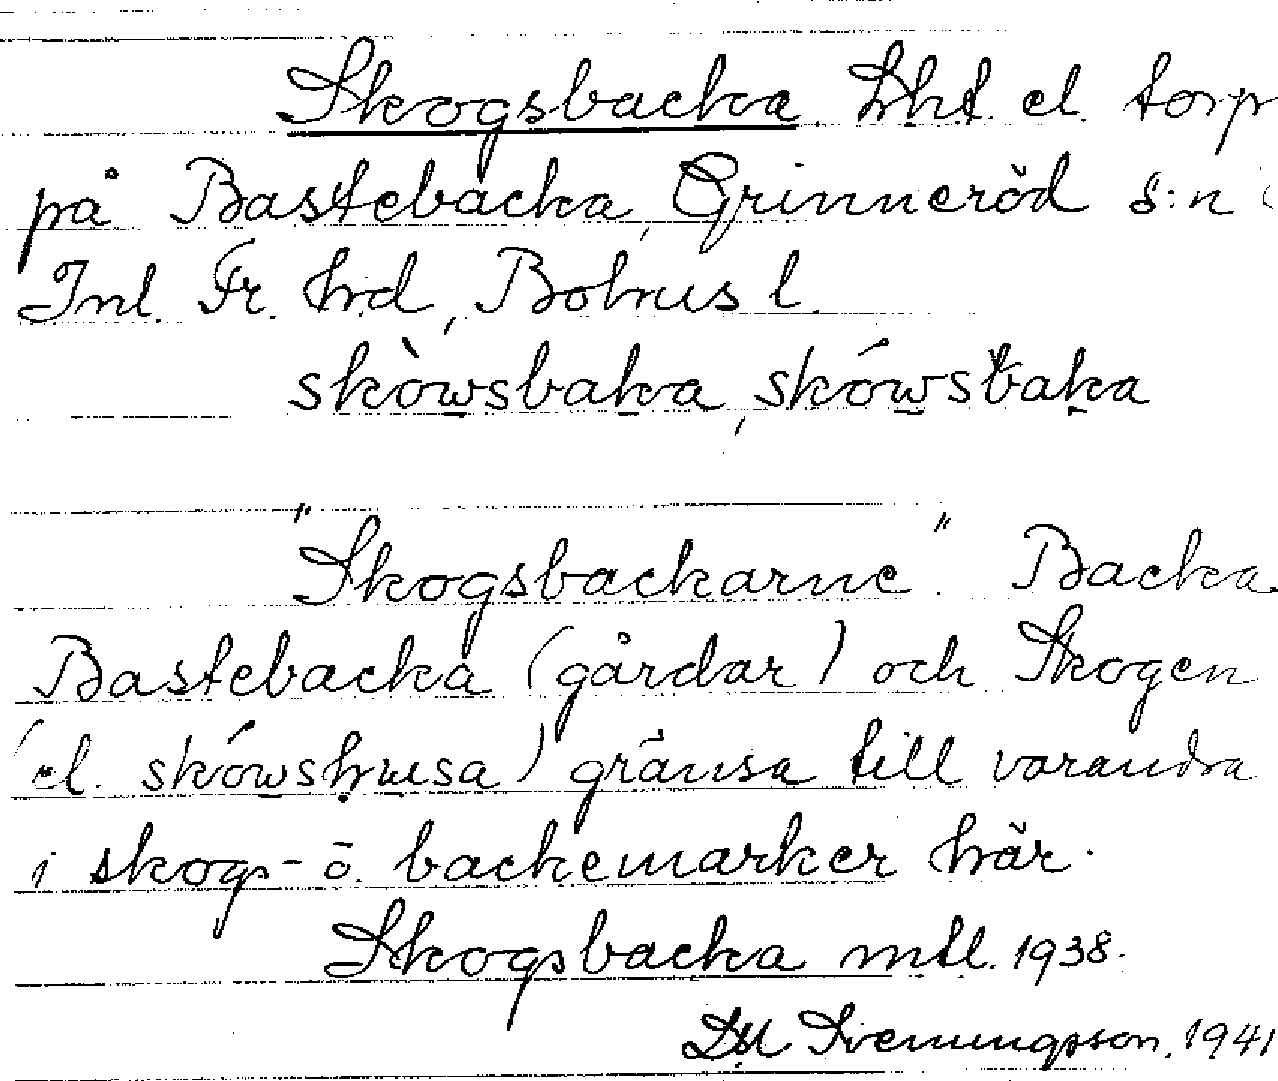 Skogsbacka. Lht. el. torp
på Bastebacka, Grinneröd s:n
Inl. Fr. hrd, Bohus l.
skòwsbaka, skówsbaka
"Skogsbackarne". Backa
Bastebacka (gårdar) och Skogen
(el. skówshusa) gränsa till varandra
i skogs- o. backemarker här.
Skogsbacka mtl. 1938.
Svenungsson, 1941